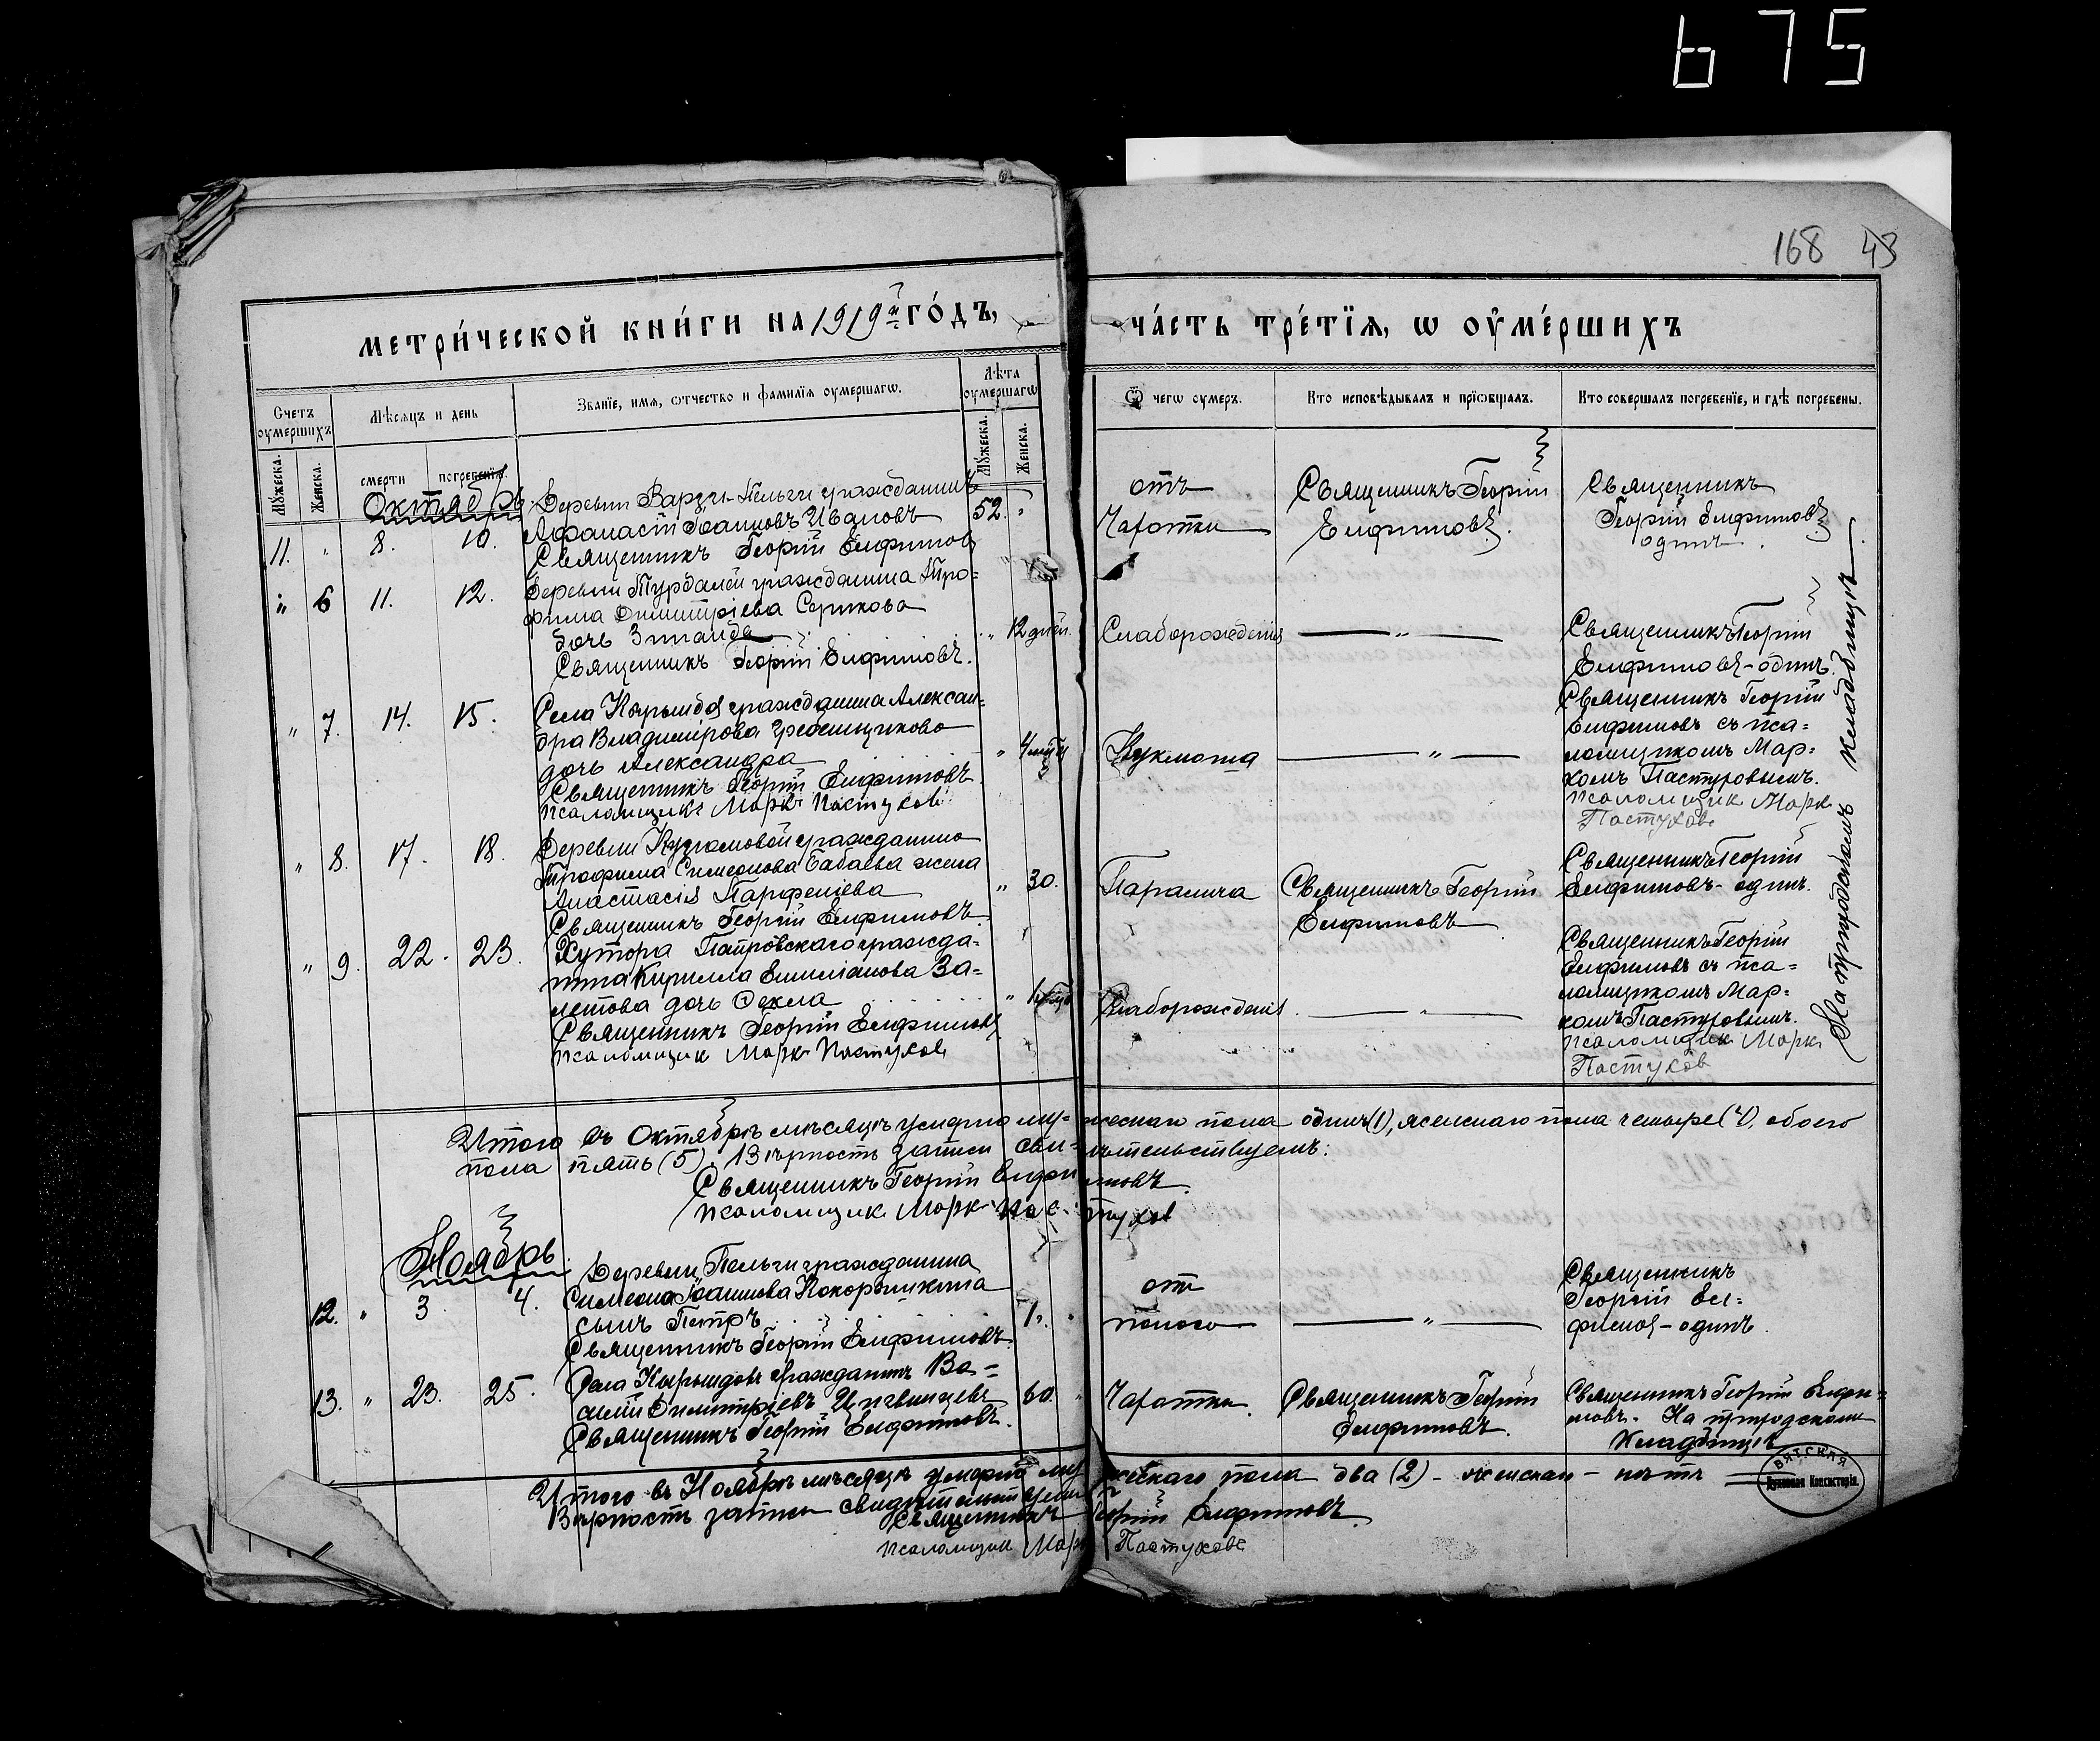 675
168 43
метри́ческой кни́ги на 1919й го́дъ,
ча́сть тре́тїѧ, ѡ оу҆ме́ршихъ
Счетъ оумершихъ
Мѣсѧцъ и день
Званїе, имѧ, ѿчество и фамилїѧ оумершагѡ.
Лѣта оумершагѡ
Ѿ чегѡ оумеръ.
Кто исповѣдывалъ и прїѡбщалъ.
Кто совершалъ погребенїе, и гдѣ погребены.
Мꙋжеска.
Женска.
смерти
погребенїѧ.
Мꙋжеска.
Женска.
Октябрь.
11. " 8. 10.
Деревни Варзи-Пельги гражданинъ
Афанасій Іоанновъ Ивановъ
Священникъ Георгій Елифимовъ
52. "
отъ
Чахотки
Священникъ Георгій
Елифимовъ.
Священникъ
Георгій Елифимовъ
одинъ.
" 6 11. 12.
гражданина Тро=
фима Димитріева Серикова
дочь Зинаида
Священникъ Георгій Елифимовъ.
" 12 дней.
Слаборожденія
— " —
Священникъ Георгій
Елифимовъ - одинъ.
" 7. 14. 15.
Села гражданина Алексан=
дра Владимірова Гребенщикова
дочь Александра
Священникъ Георгій Елифимовъ
псаломщикъ Маркъ Пастухов
" 4
— " —
Священникъ Георгій
Елифимовъ съ пса=
ломщикомъ Мар=
комъ Пастуховымъ.
псаломщик Марк
Пастухов
" 8. 17. 18.
Деревни гражданина
Трофима Симеонова Бабаева жена
Анастасія Парфеніева
Священникъ Георгій Елифимовъ
" 30.
Паралича
Священникъ Георгій
Елифимовъ
Священникъ Георгій
Елифимовъ - одинъ.
" 9. 22. 23.
Хутора Петровскаго гражда=
нина Кирилла Емиліанова За=
летова дочь Ѳекла
Священникъ Георгій Елифимовъ
псаломщик Марк Пастухов
" 1
Слаборожденія
— " —
Священникъ Георгій
Елифимовъ съ пса=
ломщикомъ Мар=
комъ Пастуховымъ.
псаломщик Марк
Пастухов
На приходскомъ кладбищѣ
Итого въ Октябрѣ мѣсяцѣ умерло му=жескаго пола одинъ (1), женскаго пола четыре (4), обоего
пола пять (5). Вѣрность записи сви=дѣтельствуемъ:
Священникъ Георгій Елифимовъ.
псаломщик Марк Пастухов
Ноябрь.
12. " 3 4.
Деревни Пельги гражданина
Симеона Іоаннова Кокорышкина
сынъ Петръ
Священникъ Георгій Елифимовъ.
1. "
от
поноса
— " —
Священникъ
Георгій Ели=
фимов - одинъ.
13. " 23. 25.
Села гражданинъ Ва=
силій Димитріевъ
Священникъ Георгій Елифимовъ.
60. "
Чахотки.
Священникъ Георгій
Елифимовъ.
Священникъ Георгій Елифи=
мовъ. На приходскомъ
кладбищѣ
Итого въ Ноябрѣ мѣсяцѣ умерло мужескаго пола два (2) - женскаго - нѣтъ
Вѣрность записи свидѣтельствуемъ
Священникъ Георгій Елифимовъ.
псаломщик Марк Пастухов
ВЯТСКАЯ
Духовная Консисторія.